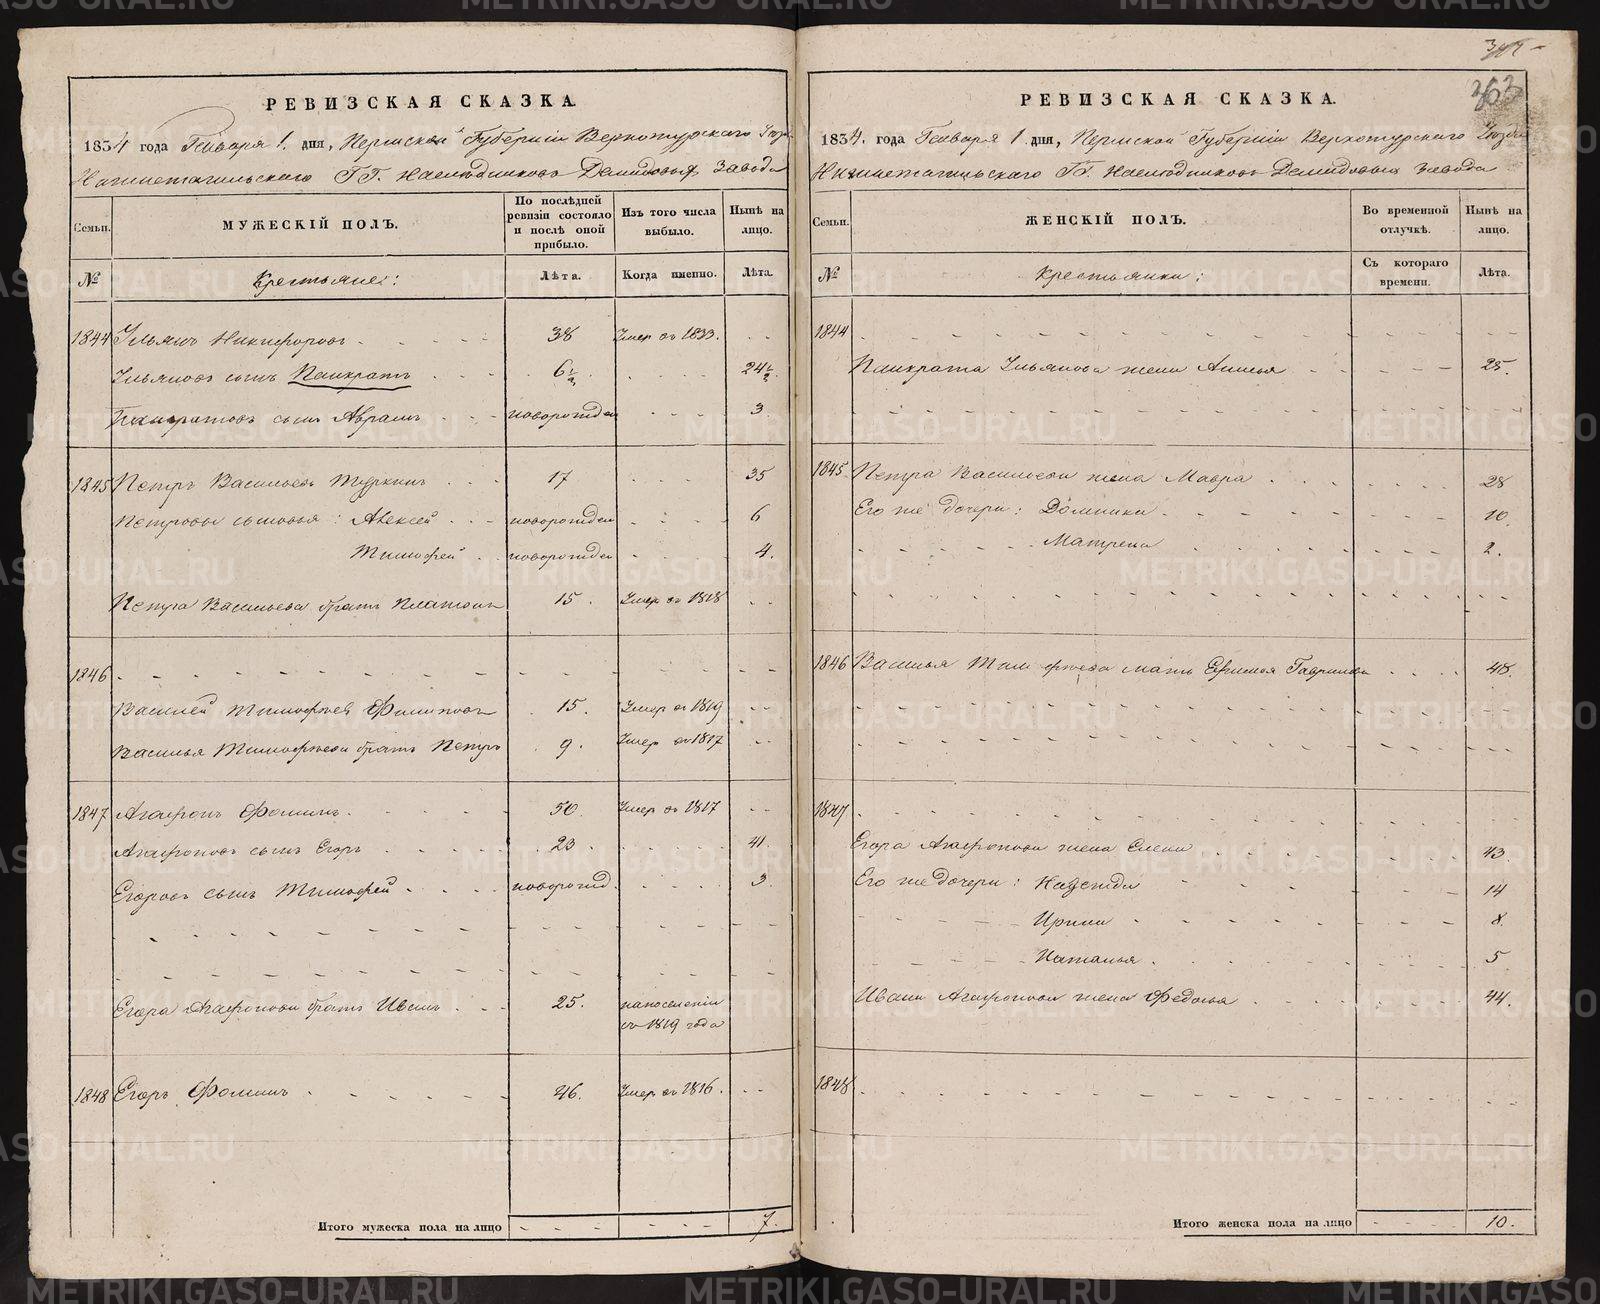 РЕВИЗСКАЯ СКАЗКА.
1834 года Генваря 1. дня, Пермской Губернiи Верхотурскаго Уезда
Нижнетагильскаго ГГ. Наследниковъ Демидовыхъ Завода
Семьи.
МУЖЕСКIЙ ПОЛЪ.
По послѣдней ревизiи состояло и послѣ оной прибыло.
Изъ того числа выбыло.
Нынѣ на лицо.
№
Крестьяне:
Лѣта.
Когда именно.
Лѣта.
1844 Ульянъ Никифоровъ 38 Умер въ 1833.
Ульяновъ сынъ Панкратъ 6½ 24½
Панкратовъ сынъ Аврамъ новорожден 3
1845 Петръ Васильевъ Туркинъ 17 35
Петровы сыновья: Алексей новорожден 6
Тимофей новорожден 4.
Петра Васильева братъ Платонъ 15. Умер въ 1818
1846
Василей Тимофеев Филиповъ 15. Умер въ 1819
Василья Тимофеева братъ Петръ 9. Умер въ 1817
1847 Агафонъ Фоминъ 50. Умер въ 1817
Агафоновъ сынъ Егоръ 23. 41.
Егоровъ сынъ Тимофей новорожд. 3.
Егора Агафонова братъ Иванъ 25. на поселенiи
съ 1819 года
1848 Егоръ Фоминъ 46. Умер въ 1816.
Итого мужеска пола на лицо 7.
363
РЕВИЗСКАЯ СКАЗКА.
1834. года Генваря 1 дня, Пермской Губернiи Верхотурскаго Уезда
Нижнетагильскаго ГГ. Наследниковъ Демидовыхъ завода
Семьи.
ЖЕНСКIЙ ПОЛЪ.
Во временной отлучкѣ.
Нынѣ на лицо.
№
Крестьянки:
Съ котораго времени.
Лѣта.
1844
Панкрата Ульянова жена Анисья 25.
1845. Петра Васильева жена Мавра 28
Его же дочери: Домника 10.
Матрена 2.
1846 Василья Тимофеева мать Гаврилова 48.
1847
Егора Агафонова жена Елена 43.
Его же дочери: Надежда 14
Ирина 8.
Наталья 5
Ивана Агафонова жена Федосья 44.
1848
Итого женска пола на лицо 10.
METRIKI.GASO-URAL.RU